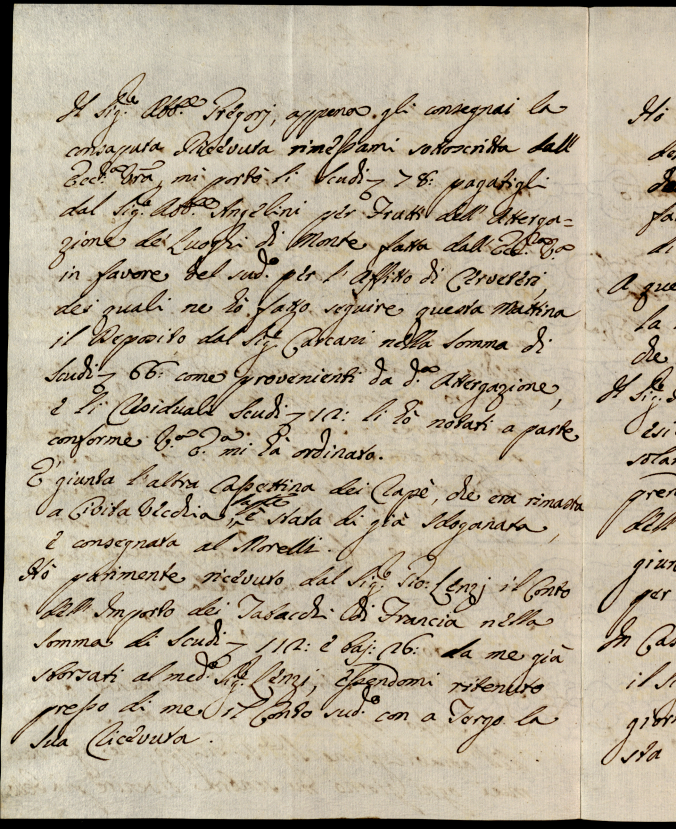 Il Sig.re Abb.e Gregorj, appena gli consegnai la
consaputa Ricevuta rimessami sottoscritta dall
Ecc.za Vra, mi portò li Scudi 78: pagatigli
dal Sig.re Abb.e Angelini per Frutti dell' Atterga=
zione de' Luoghi di Monte fatta dall' Ecc.za V.a
in favore del sud.o per l' Affitto di Cerveteri,
dei quali ne hò fatto seguire questa mattina
il Deposito dal Sig.r Carcani nella Somma di
Scudi 66: come provenienti da d.a Attergazione,
e li residuali Scudi 12: li hò notati a parte
conforme V.a E.a mi hà ordinato.
E' giunta l'altra Cassettina dei Rapè, che era rimasta
a Civita Vecchia, è stata di già Sdoganata,
e consegnata al Morelli.
Hò parimente ricevuto dal Sig.r Gio: Lenzj il Conto
dell' Importo dei Tabacchi di Francia nella
Somma di Scudi 112: e baj: 26: da me già
sborsati al med.o Sig.r Lenzi, essendomi ritenuto
presso di me il Conto sud.o con a Tergo la
sua Ricevuta.
Hò
di
A que
la
che
Il Sig.
esi
solam
pren
dell'
giun
per
In Cas
il S
gior
sta